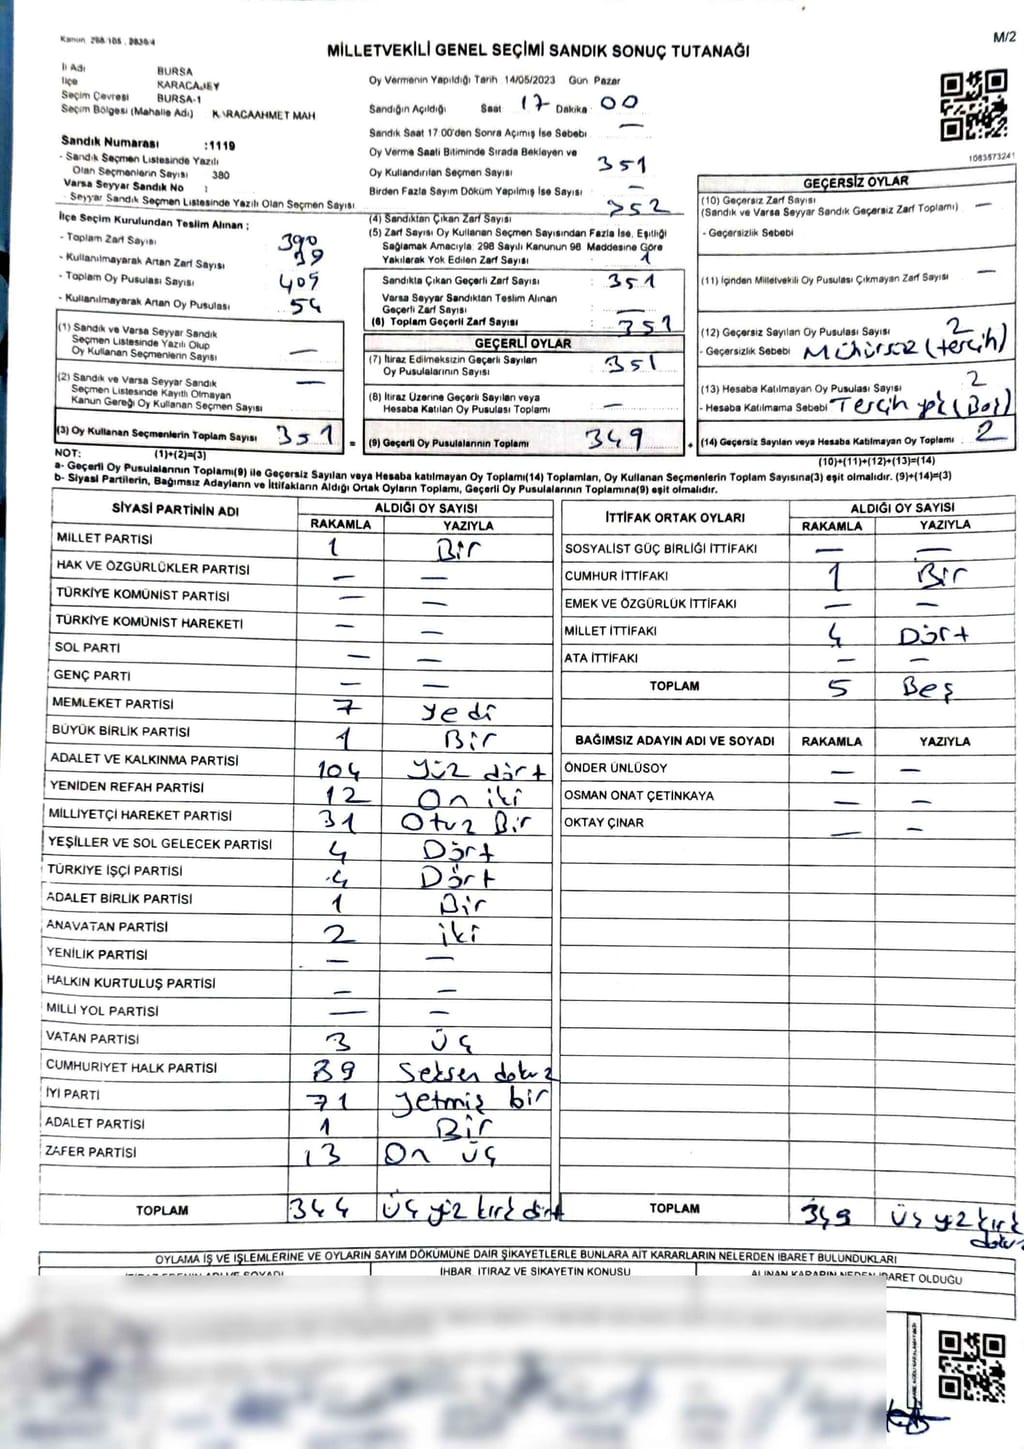 M/2
MİLLETVEKİLİ GENEL SEÇİMİ SANDIK SONUÇ TUTANAĞI
İl Adı BURSA
İlçe KARACABEY
Seçim Çevresi BURSA-1
Seçim Bölgesi (Mahalle Adı) KARACAAHMET MAH
Sandık Numarası :1119
- Sandık Seçmen Listesinde Yazılı
Olan Seçmenlerin Sayısı 380
Varsa Seyyar Sandık No :
- Seyyar Sandık Seçmen Listesinde Yazılı Olan Seçmen Sayısı
Oy Vermenin Yapıldığı Tarih 14/05/2023 Gün Pazar
Sandığın Açıldığı Saat 17 Dakika 00
Sandık Saat 17.00'den Sonra Açımış İse Sebebi —
Oy Verme Saati Bitiminde Sırada Bekleyen ve
Oy Kullandırılan Seçmen Sayısı 351
Birden Fazla Sayım Döküm Yapılmış İse Sayısı —
1083573241
İlçe Seçim Kurulundan Teslim Alınan ;
- Toplam Zarf Sayısı 390
- Kullanılmayarak Artan Zarf Sayısı 39
- Toplam Oy Pusulası Sayısı 405
- Kullanılmayarak Artan Oy Pusulası 54
(1) Sandık ve Varsa Seyyar Sandık
Seçmen Listesinde Yazılı Olup
Oy Kullanan Seçmenlerin Sayısı —
(2) Sandık ve Varsa Seyyar Sandık
Seçmen Listesinde Kayıtlı Olmayan
Kanun Gereği Oy Kullanan Seçmen Sayısı —
(3) Oy Kullanan Seçmenlerin Toplam Sayısı 351
(4) Sandıktan Çıkan Zarf Sayısı 352
(5) Zarf Sayısı Oy Kullanan Seçmen Sayısından Fazla İse, Eşitliği
Sağlamak Amacıyla, 298 Sayılı Kanunun 98. Maddesine Göre
Yakılarak Yok Edilen Zarf Sayısı 1
Sandıkta Çıkan Geçerli Zarf Sayısı : 351
Varsa Seyyar Sandıktan Teslim Alınan
Geçerli Zarf Sayısı : —
(6) Toplam Geçerli Zarf Sayısı : 351
GEÇERLİ OYLAR
(7) İtiraz Edilmeksizin Geçerli Sayılan
Oy Pusulalarının Sayısı 351
(8) İtiraz Üzerine Geçerli Sayılan veya
Hesaba Katılan Oy Pusulası Toplamı —
= (9) Geçerli Oy Pusulalarının Toplamı 349
GEÇERSİZ OYLAR
(10) Geçersiz Zarf Sayısı —
(Sandık ve Varsa Seyyar Sandık Geçersiz Zarf Toplamı)
- Geçersizlik Sebebi
(11) İçinden Milletvekili Oy Pusulası Çıkmayan Zarf Sayısı —
(12) Geçersiz Sayılan Oy Pusulası Sayısı 2
- Geçersizlik Sebebi Mühürsüz (tercih)
(13) Hesaba Katılmayan Oy Pusulası Sayısı 2
- Hesaba Katılmama Sebebi Tercih yok (Boş)
+ (14) Geçersiz Sayılan veya Hesaba Katılmayan Oy Toplamı 2
NOT: (1)+(2)=(3)
(10)+(11)+(12)+(13)=(14)
a- Geçerli Oy Pusulalarının Toplamı(9) ile Geçersiz Sayılan veya Hesaba katılmayan Oy Toplamı(14) Toplamları, Oy Kullanan Seçmenlerin Toplam Sayısına(3) eşit olmalıdır. (9)+(14)=(3)
b- Siyasi Partilerin, Bağımsız Adayların ve İttifakların Aldığı Ortak Oyların Toplamı, Geçerli Oy Pusulalarının Toplamına(9) eşit olmalıdır.
SİYASİ PARTİNİN ADI ALDIĞI OY SAYISI
RAKAMLA YAZIYLA
MİLLET PARTİSİ 1 Bir
HAK VE ÖZGÜRLÜKLER PARTİSİ — —
TÜRKİYE KOMÜNİST PARTİSİ — —
TÜRKİYE KOMÜNİST HAREKETİ — —
SOL PARTİ — —
GENÇ PARTİ — —
MEMLEKET PARTİSİ 7 yedi
BÜYÜK BİRLİK PARTİSİ 1 Bir
ADALET VE KALKINMA PARTİSİ 104 Yüz dört
YENİDEN REFAH PARTİSİ 12 On iki
MİLLİYETÇİ HAREKET PARTİSİ 31 Otuz Bir
YEŞİLLER VE SOL GELECEK PARTİSİ 4 Dört
TÜRKİYE İŞÇİ PARTİSİ 4 Dört
ADALET BİRLİK PARTİSİ 1 Bir
ANAVATAN PARTİSİ 2 iki
YENİLİK PARTİSİ — —
HALKIN KURTULUŞ PARTİSİ — —
MİLLİ YOL PARTİSİ — —
VATAN PARTİSİ 3 Üç
CUMHURİYET HALK PARTİSİ 89 Seksen dokuz
İYİ PARTİ 71 Yetmiş bir
ADALET PARTİSİ 1 Bir
ZAFER PARTİSİ 13 On üç
TOPLAM 344 Üç yüz kırk dört
İTTİFAK ORTAK OYLARI ALDIĞI OY SAYISI
RAKAMLA YAZIYLA
SOSYALİST GÜÇ BİRLİĞİ İTTİFAKI — —
CUMHUR İTTİFAKI 1 Bir
EMEK VE ÖZGÜRLÜK İTTİFAKI — —
MİLLET İTTİFAKI 4 Dört
ATA İTTİFAKI — —
TOPLAM 5 Beş
BAĞIMSIZ ADAYIN ADI VE SOYADI RAKAMLA YAZIYLA
ÖNDER ÜNLÜSOY — —
OSMAN ONAT ÇETİNKAYA — —
OKTAY ÇINAR — —
TOPLAM 349 Üç yüz kırk
dokuz
OYLAMA İŞ VE İŞLEMLERİNE VE OYLARIN SAYIM DÖKÜMÜNE DAİR ŞİKAYETLERLE BUNLARA AİT KARARLARIN NELERDEN İBARET BULUNDUKLARI
İHBAR, İTİRAZ VE ŞİKAYETİN KONUSU
ALINAN KARARIN NEDEN İBARET OLDUĞU